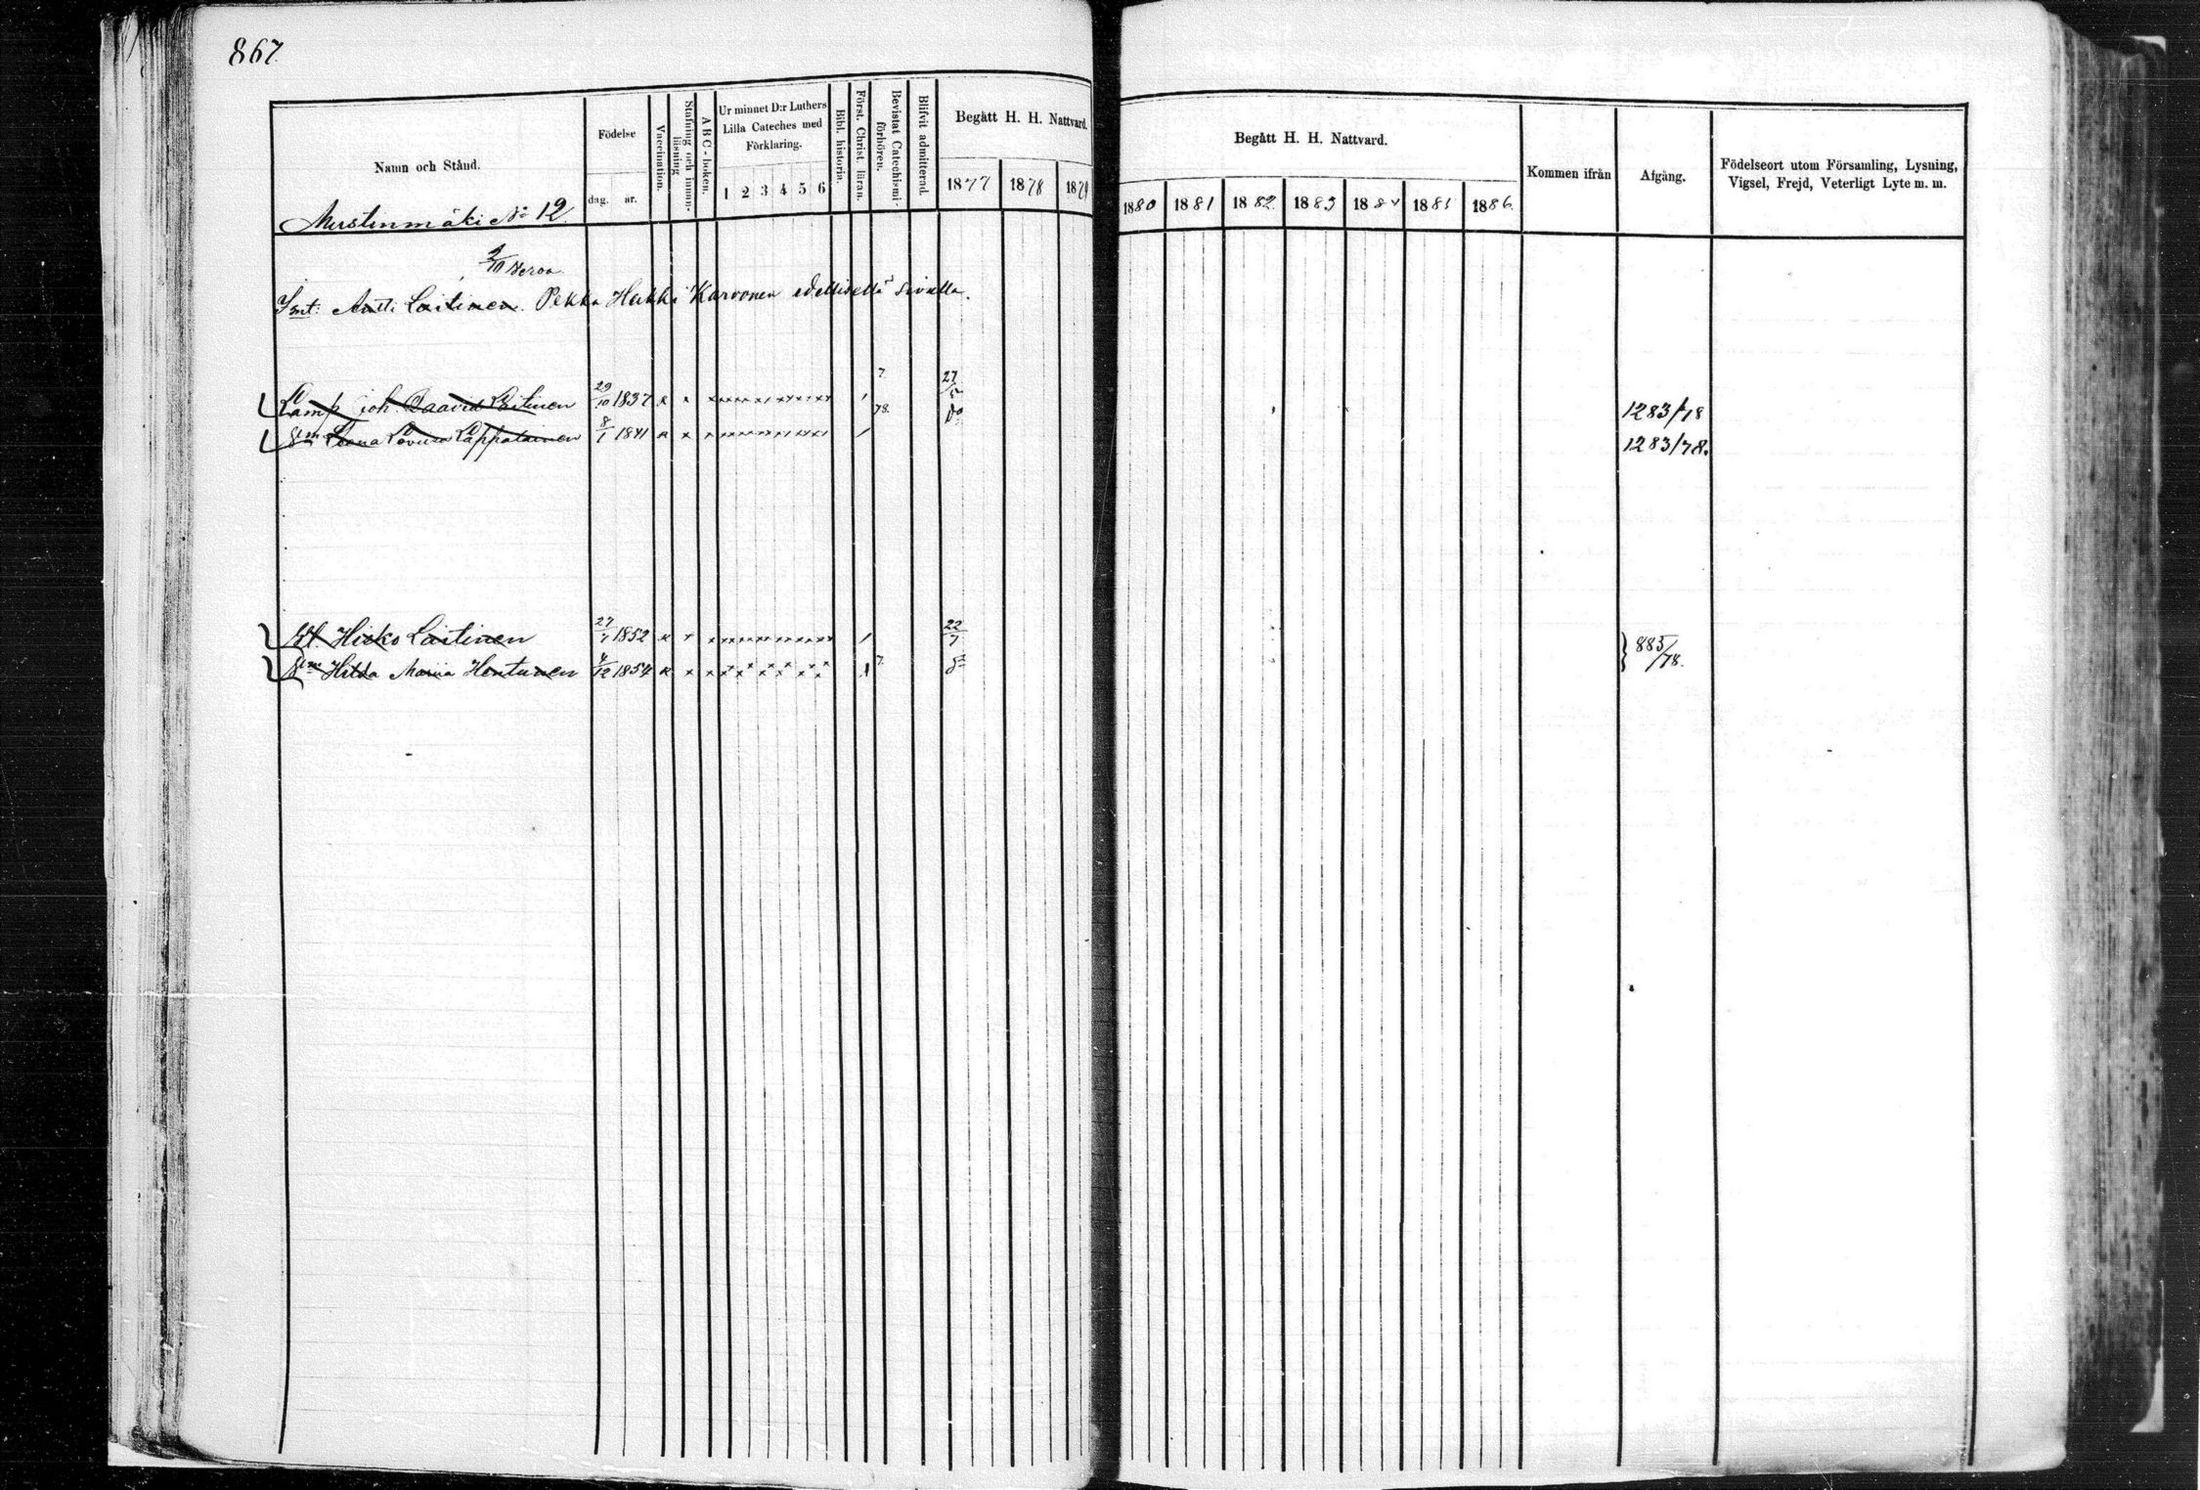 867.
Namn och Stånd.
Födelse
dag. år.
Vaccination.
Stafning och innan-läsning
A B C - boken.
Ur minnet D:r Luthers
Lilla Cateches med
Förklaring.
1 2 3 4 5 6
Bibl. historia.
Först. Christ. läran.
Bevistat Catechismi-förhören.
Blifvit admitterad.
Begått H. H. Nattvard.
1877 1878 1879
Begått H. H. Nattvard.
1880 1881 1882 1883 1884 1885 1886.
Kommen ifrån
Afgång.
Födelseort utom Församling, Lysning,
Vigsel, Frejd, Veterligt Lyte m. m.
Mustinmäki No 12
Antti Laitinen. Pekka Heikki Karvonen edellisellä sivulla.
Lamp. Joh. Daavid Laitinen 29/10 1837 27/5 1283/78
Leena Lovisa Lappalainen 8/1 1841 do 1283/78.
Laitinen 27/7 1852 22/7
885/78.
Hilda Maria Hentunen 4/12 1854